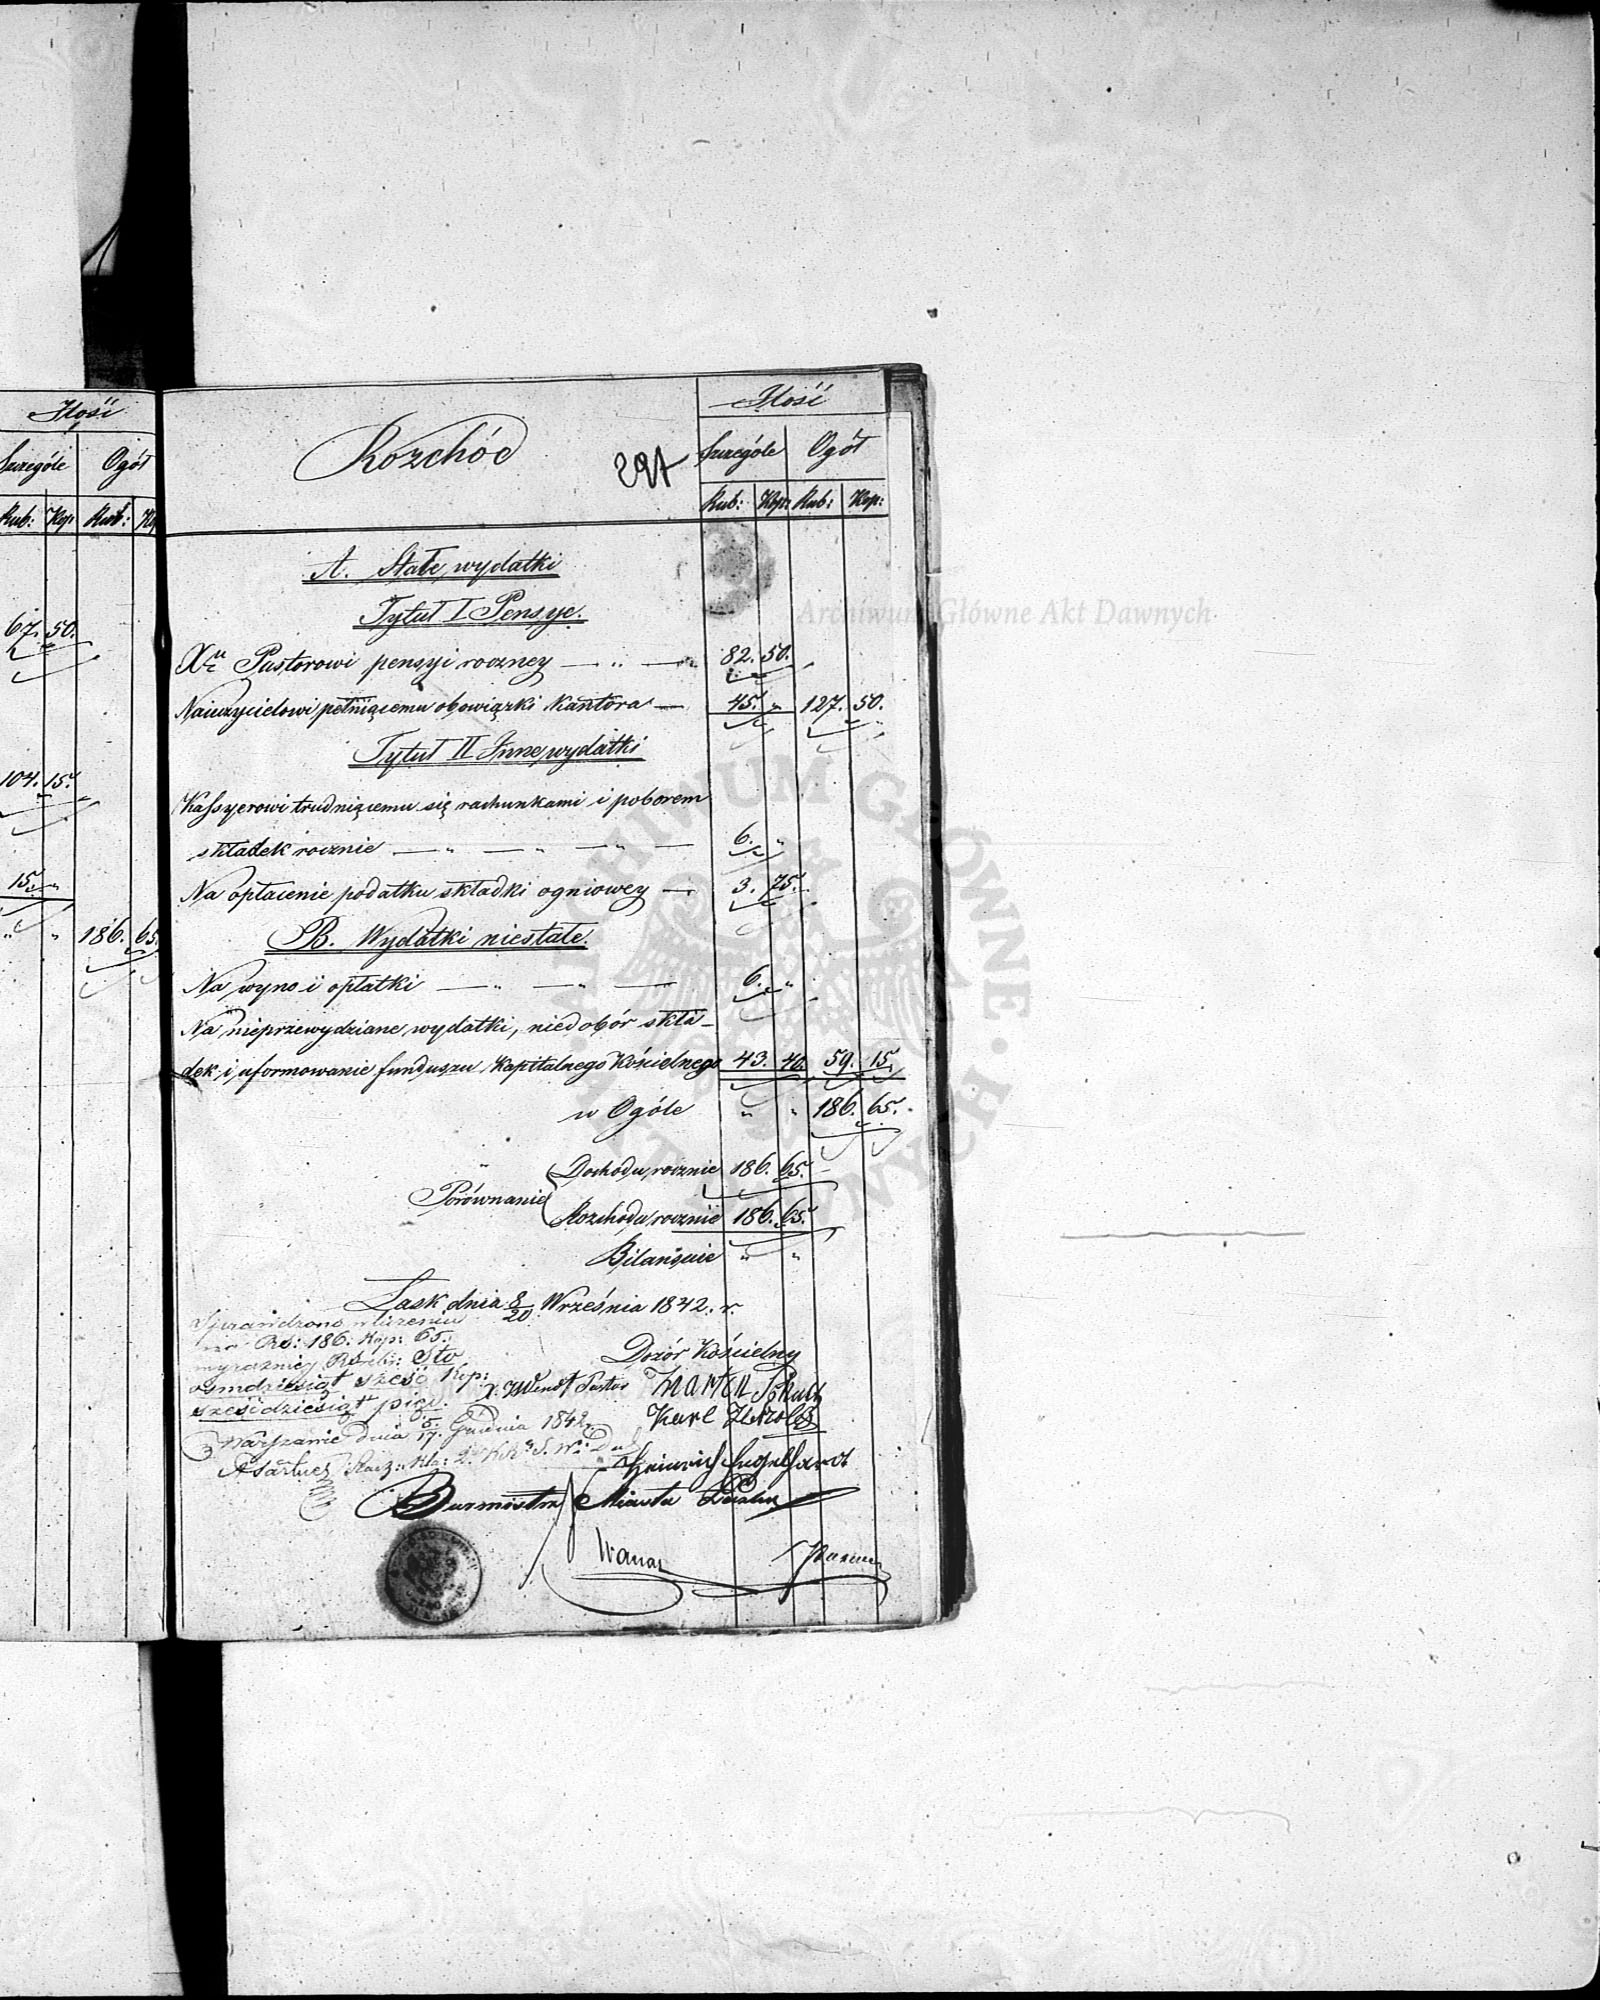 Ilość
Szczególe Ogół
Rub: Kop: Rub: Ko
67. 50.
104. 15.
15. "
" " 186. 65.
Rozchód
297
Ilość
Szczególe Ogół
Rub: Kop: Rub: Kop:
A. Stałe wydatki
Tytuł I Pensye.
Pastorowi pensyi roczney — " — 82. 50.
Nauczycielowi pełniącemu obowiązki Kantora — 45. " 127. 50.
Tytuł II Inne wydatki
Kassyerowi trudniącemu się rachunkami i poborem
składek rocznie — " — " — " — 6. "
Na opłacenie podatku składki ogniowey — 3. 75.
B. Wydatki niestałe.
Na wyno i opłatki — " — " — 6. "
Na nieprzewydziane wydatki, niedobór skła-
dek i uformowanie funduszu Kapitalnego Kościelnego 43. 40. 59. 15.
w Ogóle " " 186. 65.
Porównanie
Dochodu rocznie 186. 65.
Rozchodu rocznie 186. 65.
Bilansuie " "
Łask dnia 8/20 Września 1842. r.
Sprawdzono w liczeniu
na Rs: 186. Kop: 65.
wyrazniey Rubli: Sto
osmdziesiąt sześć Kop:
sześćdziesiąt pięć.
Warszawie dnia 5/17. Grudnia 1842.
Dozór Kościelny
Wendt Pastor
Karl
Heinrich Engelhardt
Burmistrz Miasta
Archiwum Główne Akt Dawnych
ARCHIWUM GŁÓWNE AKT DAWNYCH